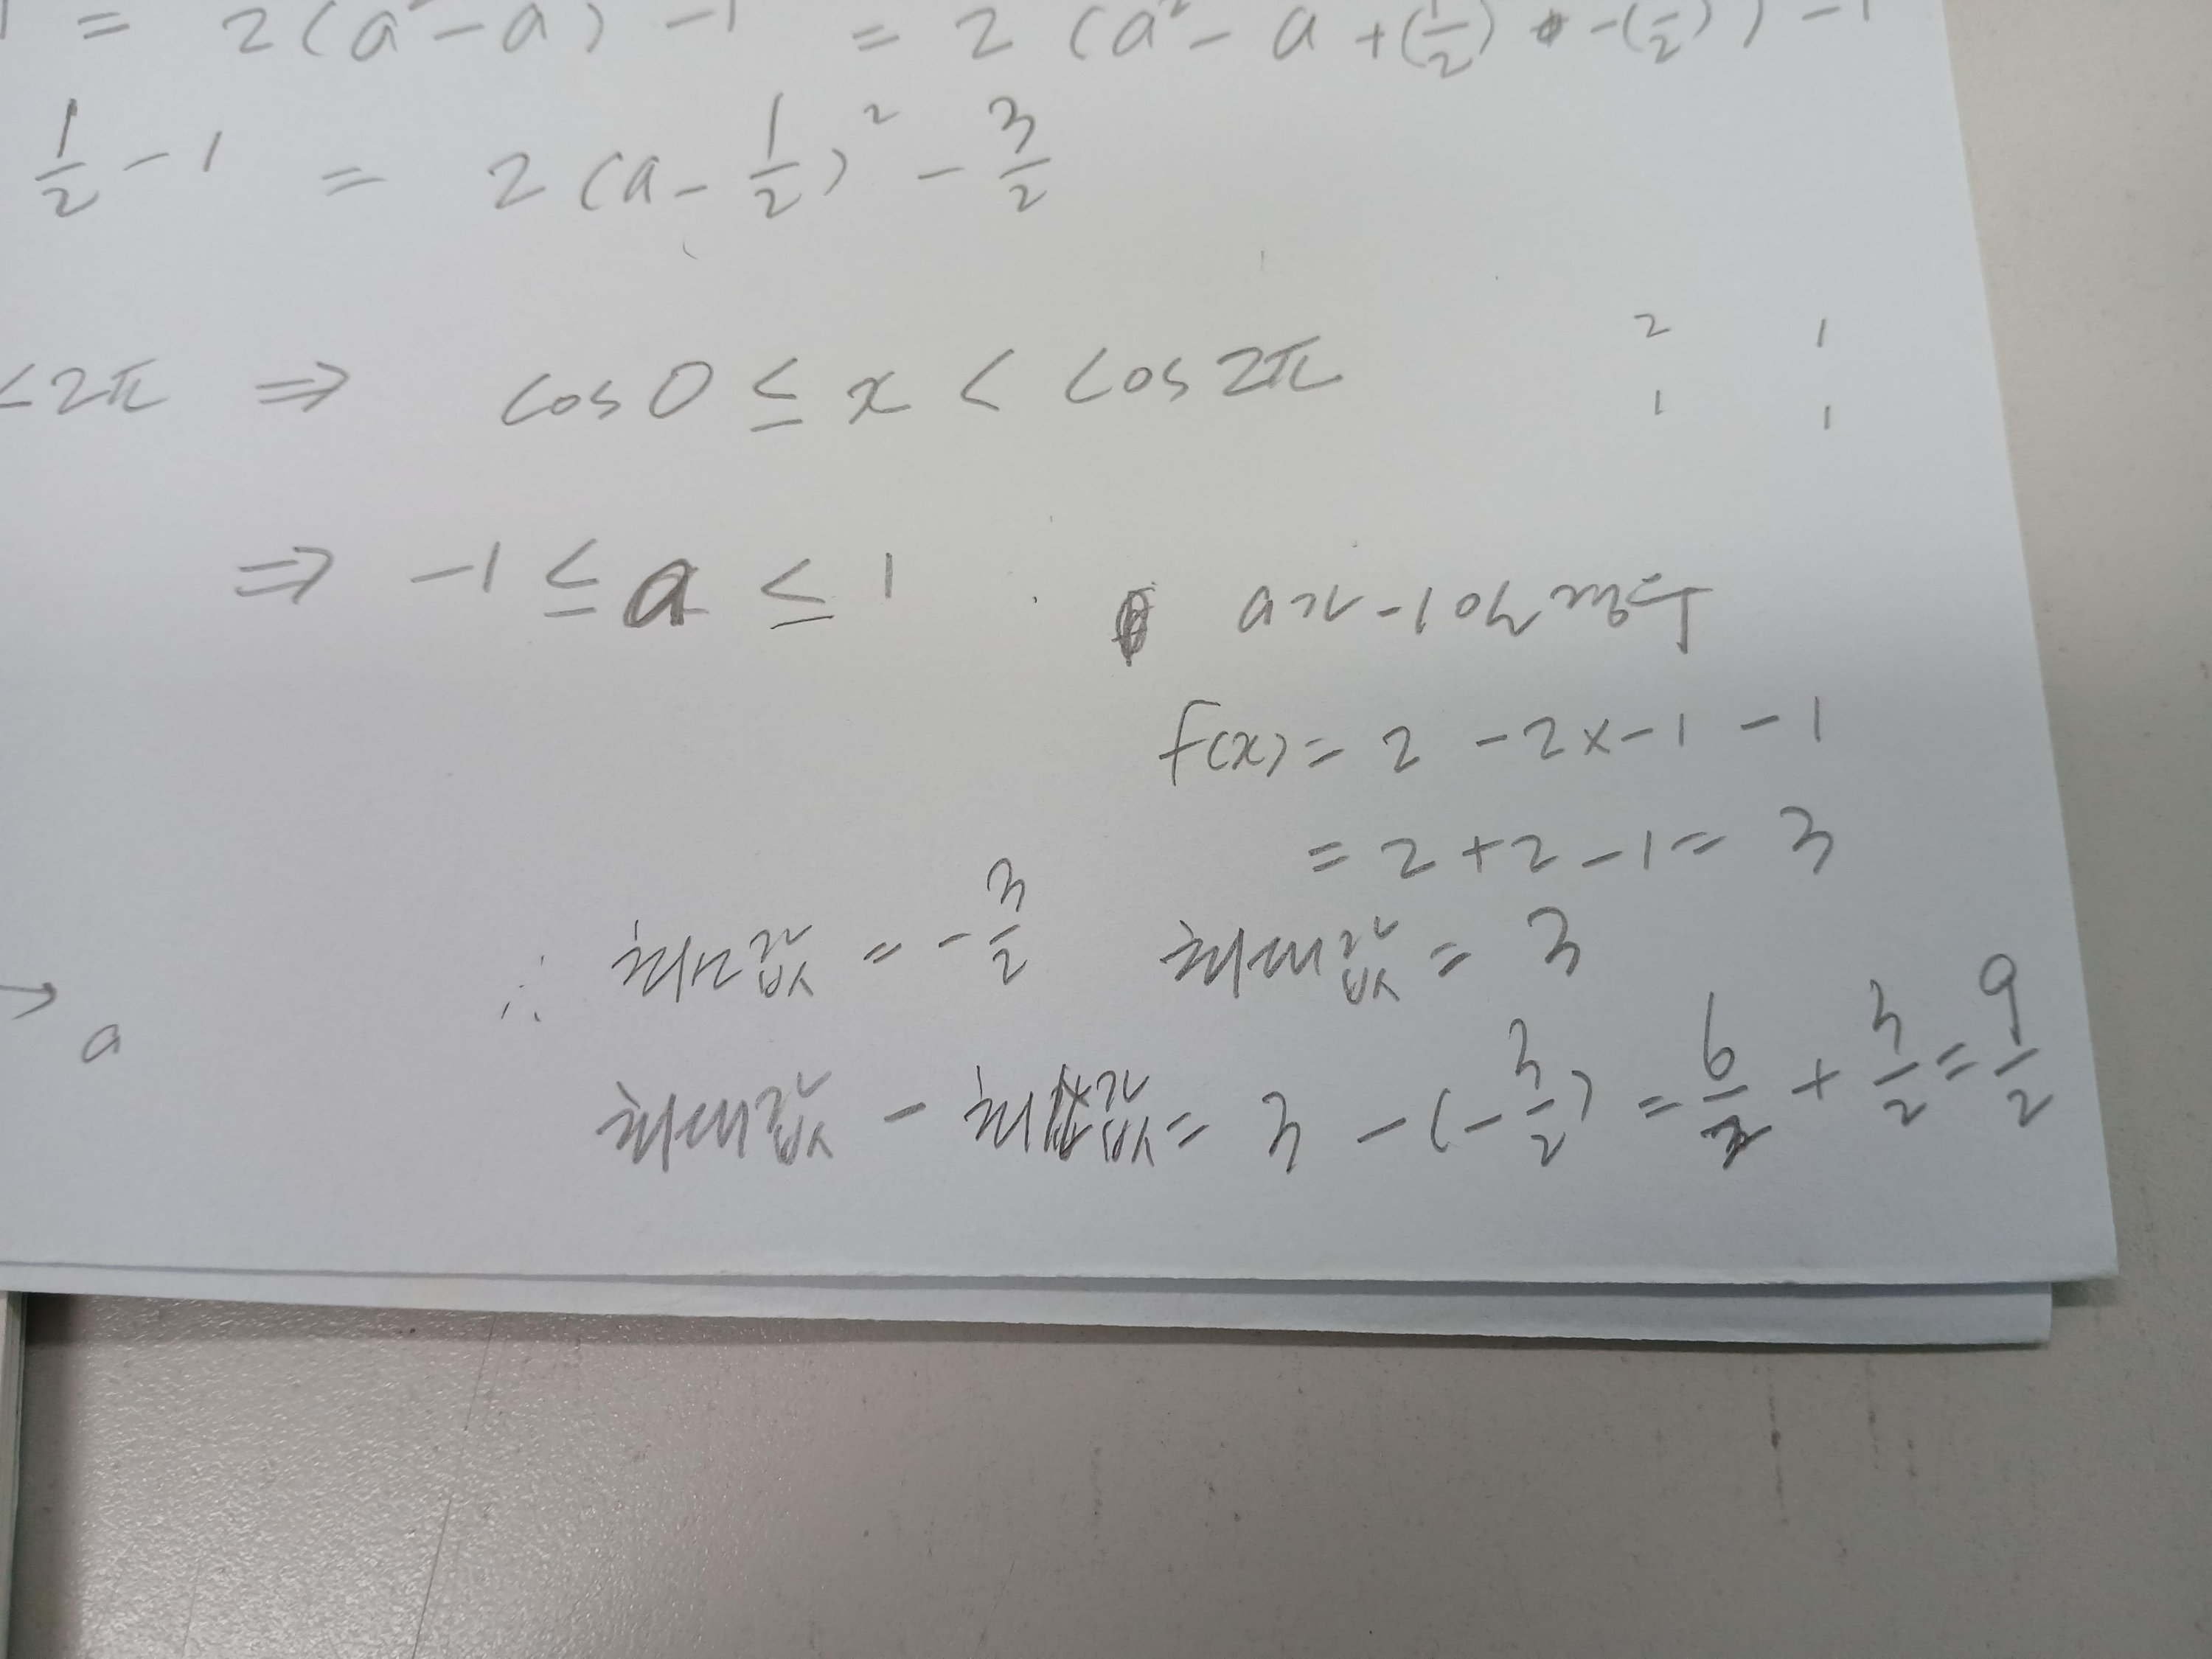 = 2(a² - a) - 1 = 2(a² - a + (1/2) - (1/2)) - 1
1/2 - 1 = 2(a - 1/2)² - 3/2
< 2π ⇒ cos0 ≤ x < cos2π
2 1
1 1
⇒ -1 ≤ a ≤ 1
a가 -1일 경우
f(x) = 2 - 2×-1 - 1
= 2 + 2 - 1 = 3
∴ 최소값 = -3/2 최대값 = 3
→ a
최대값 - 최소값 = 3 - (-3/2) = 6/2 + 3/2 = 9/2